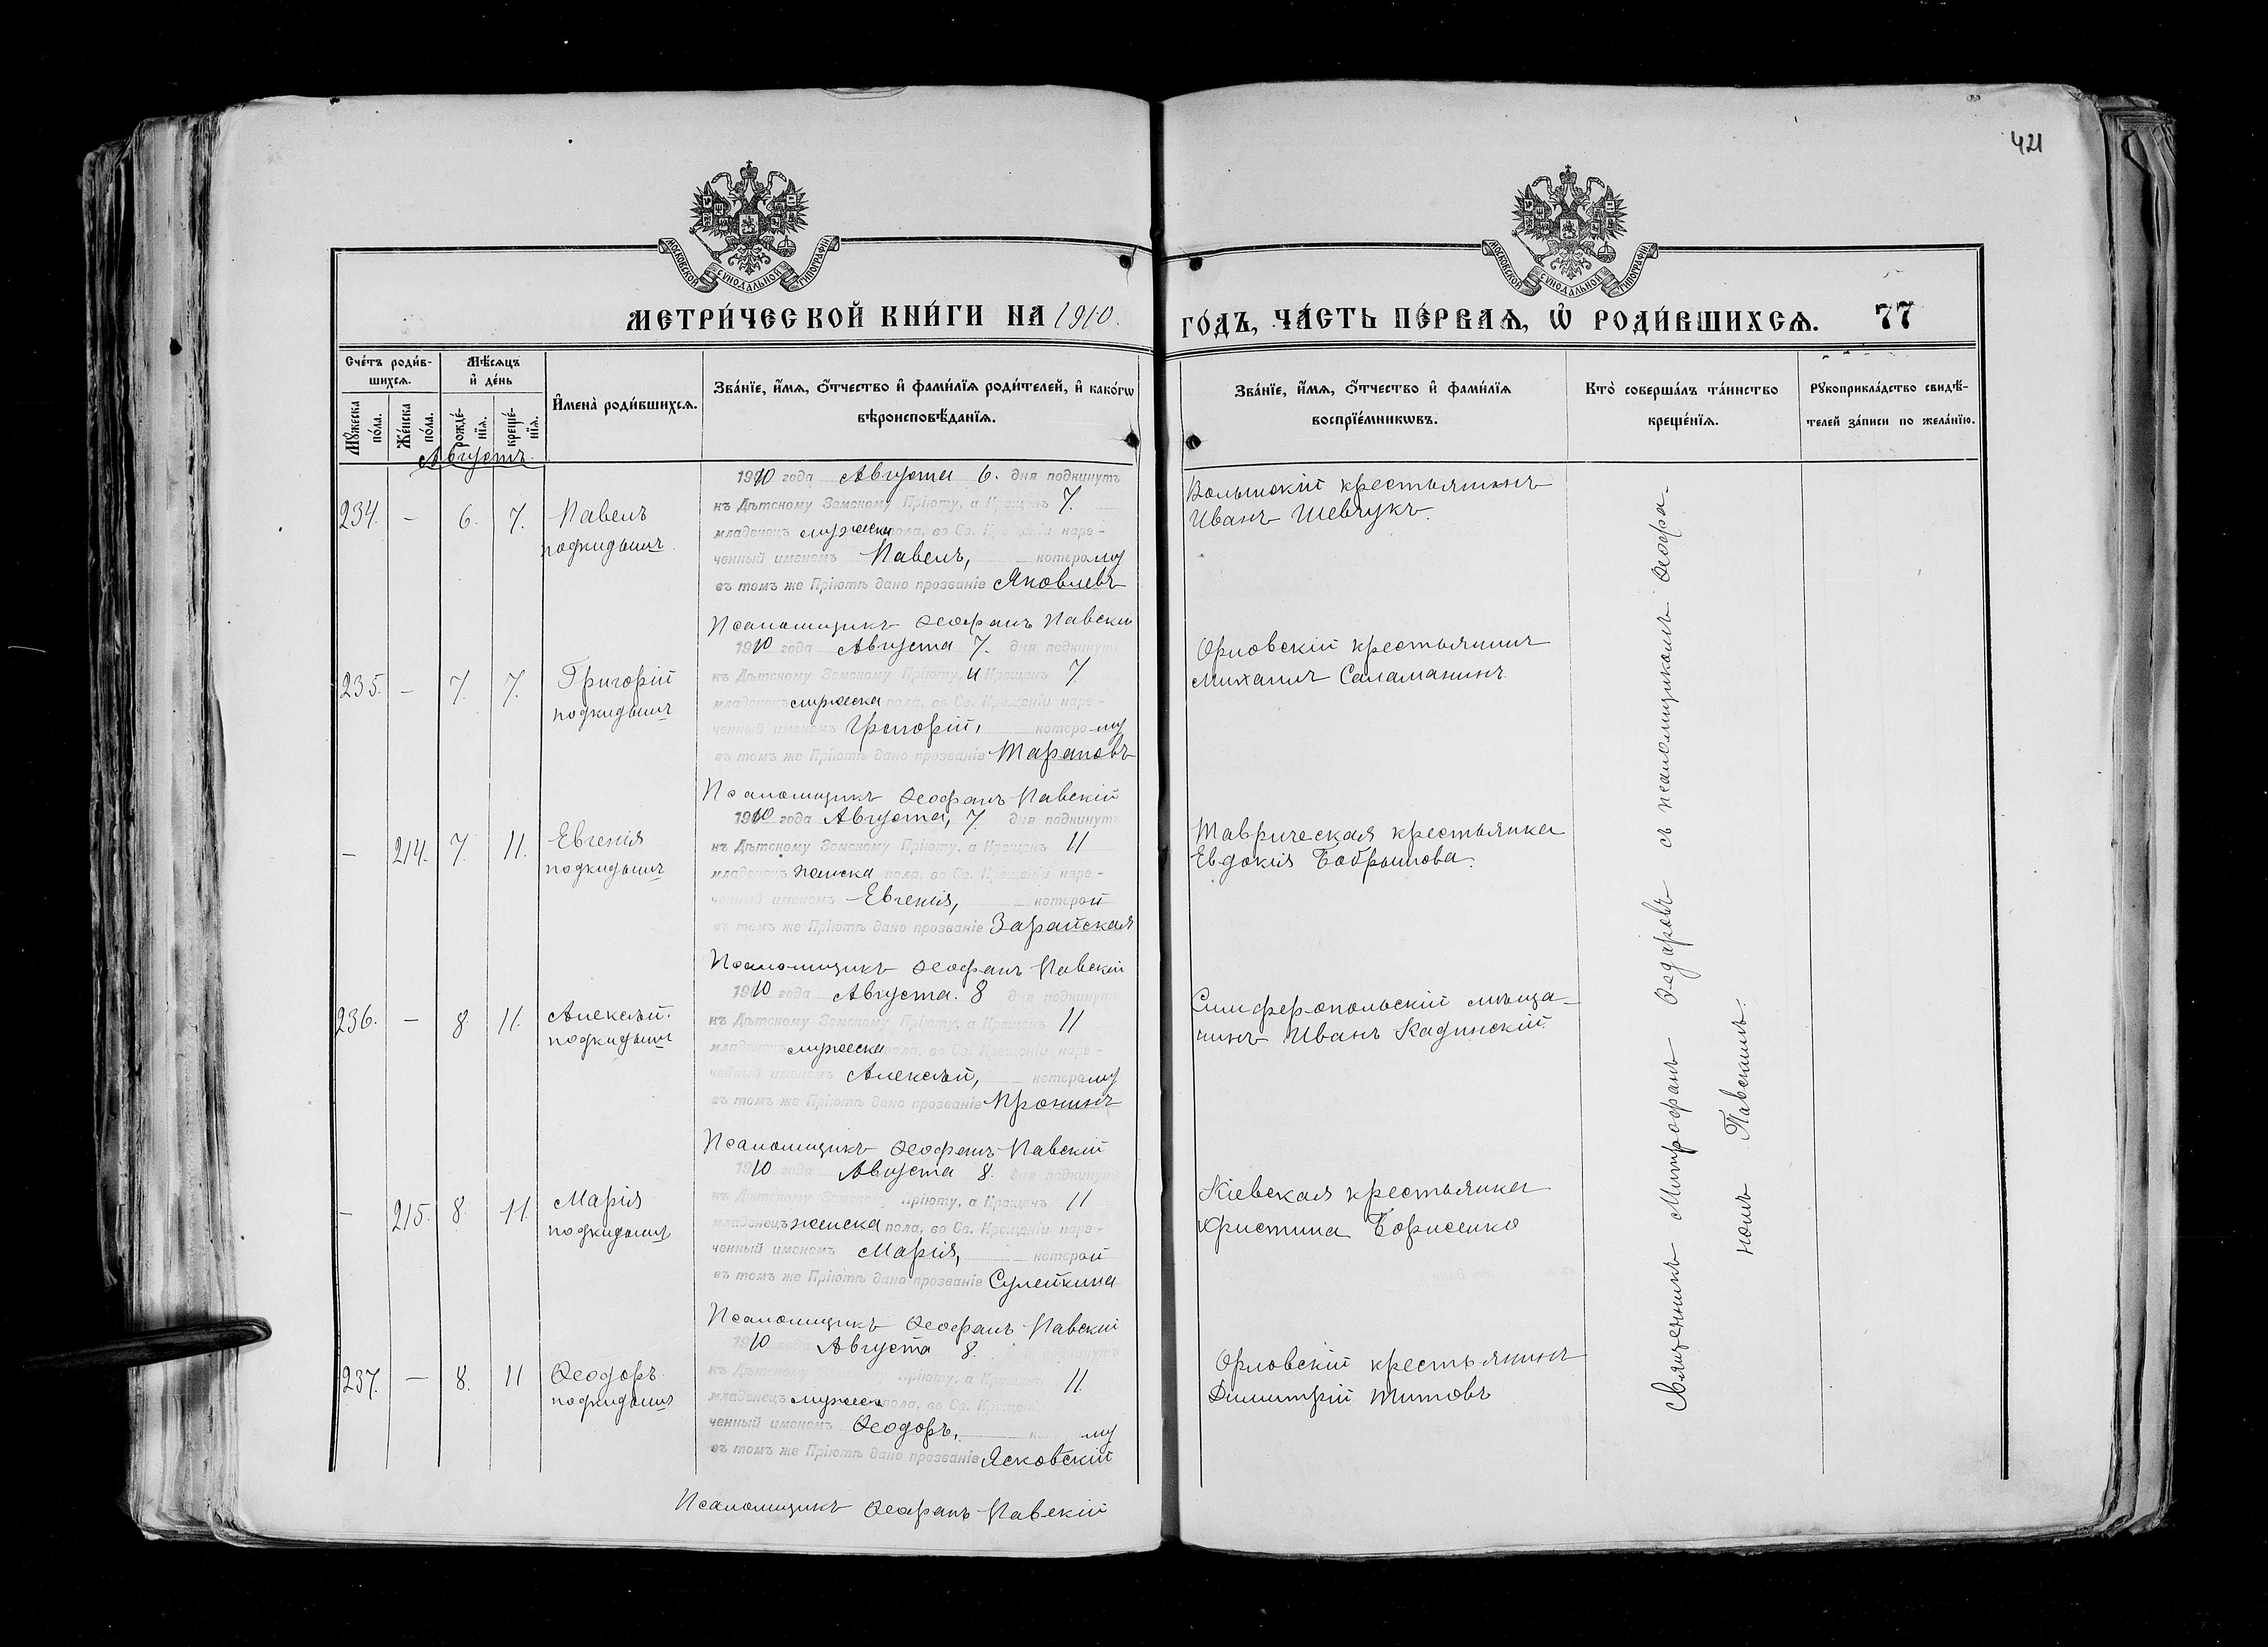 421
МОСКОВСКОЙ СУНОДАЛЬНОЙ ТИПОГРАФІИ
МОСКОВСКОЙ СУНОДАЛЬНОЙ ТИПОГРАФІИ
МЕТРИ́ЧЕСКОЙ КНИ́ГИ НА 1910.
ГО́ДЪ, ЧА́СТЬ ПЕ́РВАѦ, Ѡ҆ РОДИ́ВШИХСѦ. 77
Сче́тъ роди́в-
шихсѧ.
Мꙋ́жеска по́ла.
Же́нска по́ла.
Мѣ́сѧцъ
и҆ де́нь
рожде́-
нїѧ.
креще́-
нїѧ.
И҆мена̀ роди́вшихсѧ.
Зва́нїе, и҆́мѧ, ѻ҆́тчество и҆ фами́лїѧ роди́телей, и҆ како́гѡ
вѣроисповѣ́данїѧ.
Зва́нїе, и҆́мѧ, ѻ҆́тчество и҆ фами́лїѧ
воспрїе́мникѡвъ.
Кто̀ соверша́лъ та́инство
креще́нїѧ.
Рꙋкоприкла́дство свидѣ́-
телей за́писи по жела́нїю.
Августъ.
234. – 6. 7. Павелъ
подкидышъ
1910 года Августа 6. дня подкинутъ
къ Дѣтскому Земскому Пріюту, а Крещенъ 7.
младенецъ мужеска пола, во Св. Крещеніи наре-
ченный именемъ Павелъ, которому
въ томъ же Пріютѣ дано прозваніе Яковлевъ
Псаломщикъ Ѳеофанъ Павскій
Волынскій крестьянинъ
Иванъ Шевчукъ.
235. – 7. 7. Григорій
подкидышъ
1910 года Августа 7. дня подкинутъ
къ Дѣтскому Земскому Пріюту, и Крещенъ 7
младенецъ мужеска пола, во Св. Крещеніи наре-
ченный именемъ Григорій, которому
въ томъ же Пріютѣ дано прозваніе Тарановъ
Псаломщикъ Ѳеофанъ Павскій
Орловскій крестьянинъ
Михаилъ Саламанинъ.
– 214. 7. 11. Евгенія
подкидышъ
1910 года Августа, 7. дня подкинутъ
къ Дѣтскому Земскому Пріюту, а Крещенъ 11
младенецъ женска пола, во Св. Крещеніи наре-
ченный именемъ Евгенія, которой
въ томъ же Пріютѣ дано прозваніе Зарайская
Псаломщикъ Ѳеофанъ Павскій
Таврическая крестьянка
Евдокія Бобрышова.
236. – 8. 11. Алексѣй.
подкидышъ
1910 года Августа. 8 дня подкинутъ
къ Дѣтскому Земскому Пріюту, а Крещенъ 11
младенецъ мужеска пола, во Св. Крещеніи наре-
ченный именемъ Алексѣй, которому
въ томъ же Пріютѣ дано прозваніе Пронинъ
Псаломщикъ Ѳеофанъ Павскій
Симферопольскій мѣща-
нинъ Иванъ Кадинскій.
– 215. 8. 11. Марія
подкидышъ
1910 года Августа 8. дня подкинутъ
къ Дѣтскому Земскому Пріюту, а Крещенъ 11
младенецъ женска пола, во Св. Крещеніи наре-
ченный именемъ Марія, которой
въ томъ же Пріютѣ дано прозваніе Сулейкина
Псаломщикъ Ѳеофанъ Павскій
Кіевская крестьянка
Христина Борисенко
237. – 8. 11 Ѳеодоръ.
подкидышъ
1910 Августа 8. подкинутъ
къ Дѣтскому Земскому Пріюту, а Крещенъ 11.
младенецъ мужеска пола, во Св. Крещеніи
ченный именемъ Ѳеодоръ, му
въ томъ же Пріютѣ дано прозваніе Ясковскій
Псаломщикъ Ѳеофанъ Павскій
Орловскій крестьянинъ
Димитрій Титовъ
Священникъ Митрофанъ Ѳедоровъ съ псаломщикомъ Ѳеофа-
номъ Павскимъ.